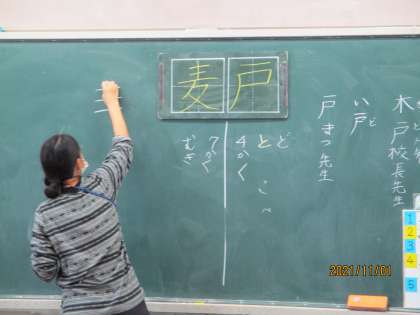 木戸校長先生
い戸
ど
戸まつ先生
戸
ど
と
4かく
麦
7かく
むぎ
1
2
3
4
5
2021/11/01